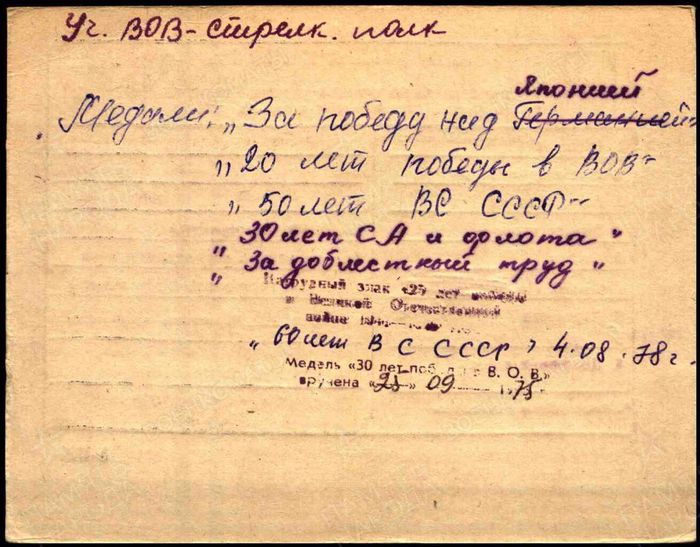 Уч. ВОВ - стрелк. полк
Японией
Медали: „За победу над Германией"
„20 лет победы в ВОВ"
„50 лет ВС СССР"
„30 лет СА и флота"
„За доблестный труд"
Нагрудный знак «25 лет победы
в Великой Отечественной
войне
„60 лет ВС СССР" 4.08.78 г.
Медаль «30 лет поб. в В. О. В.»
вручена «28» 09 1975